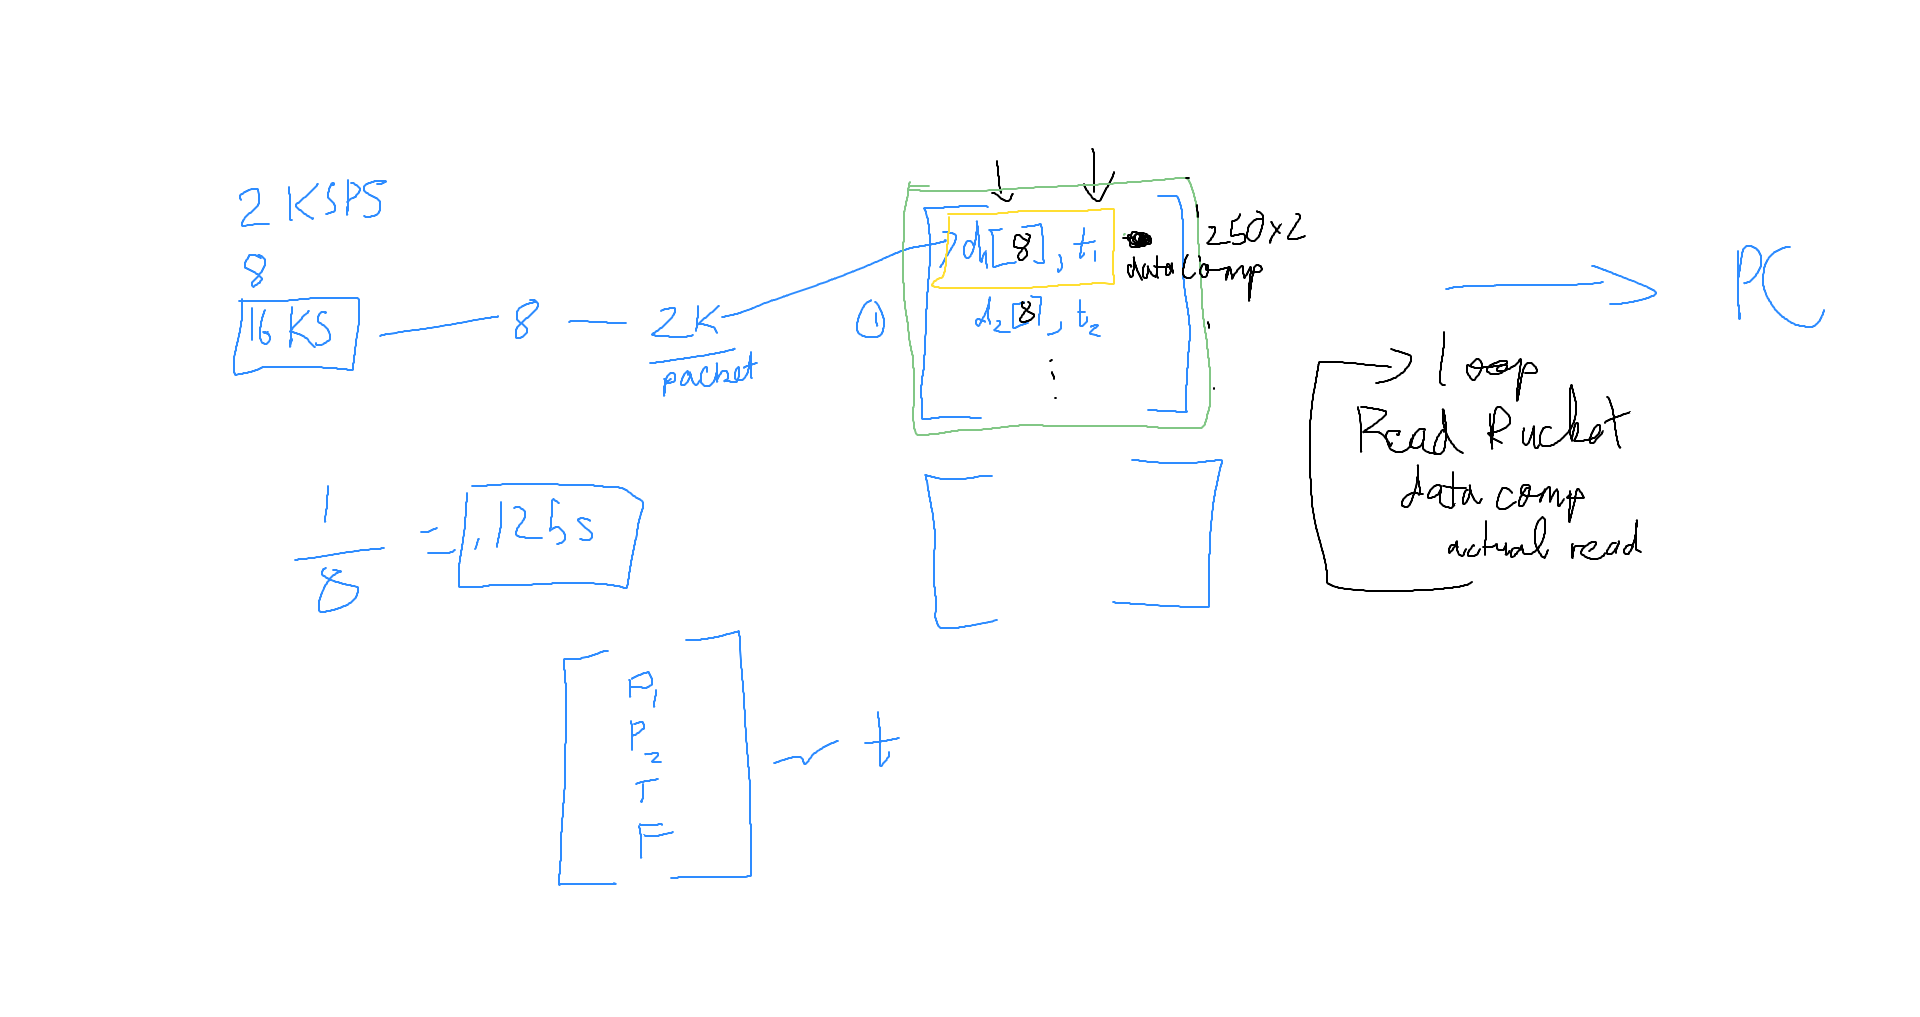 2 KSPS
8
16 KS
8
2K
packet
①
d1[8], t1
data comp
d2[8], t2
⋮
250x2
PC
loop
Read Rucket
data comp
actual read
1
8
= .125s
P1
P2
T
F
t